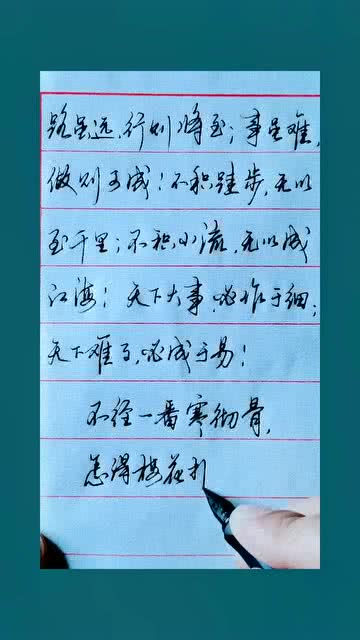 路虽远,行则将至;事虽难,
做则可成!不积跬步,无以
至千里;不积小流,无以成
江海!天下大事,必作于细;
天下难事,必成于易!
不经一番寒彻骨,
怎得梅花扌